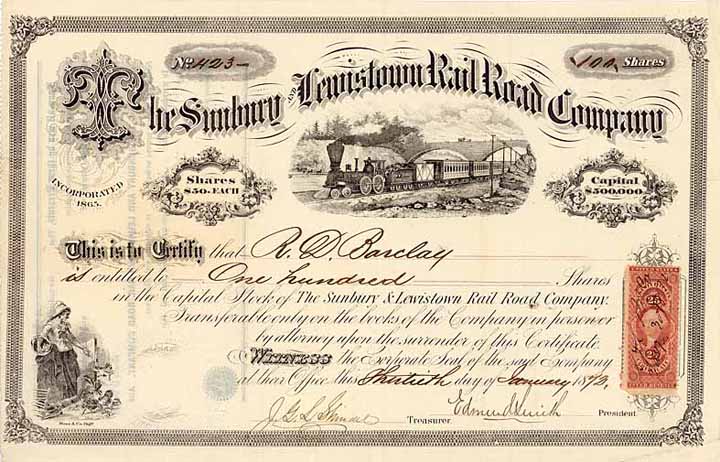 No. 423
100 Shares
The Sunbury and Lewistown Rail Road Company
INCORPORATED
1865.
Shares
$50. EACH
Capital
$500,000.
This is to Certify that R. D. Barclay
is entitled to One hundred Shares
in the Capital Stock of The Sunbury & Lewistown Rail Road Company.
Transferable only on the books of the Company in person or
by attorney upon the surrender of this Certificate.
WITNESS the Corporate Seal of the said Company
at their Office this Thirtieth day of January 1872.
Treasurer.
Edmund Smith
President